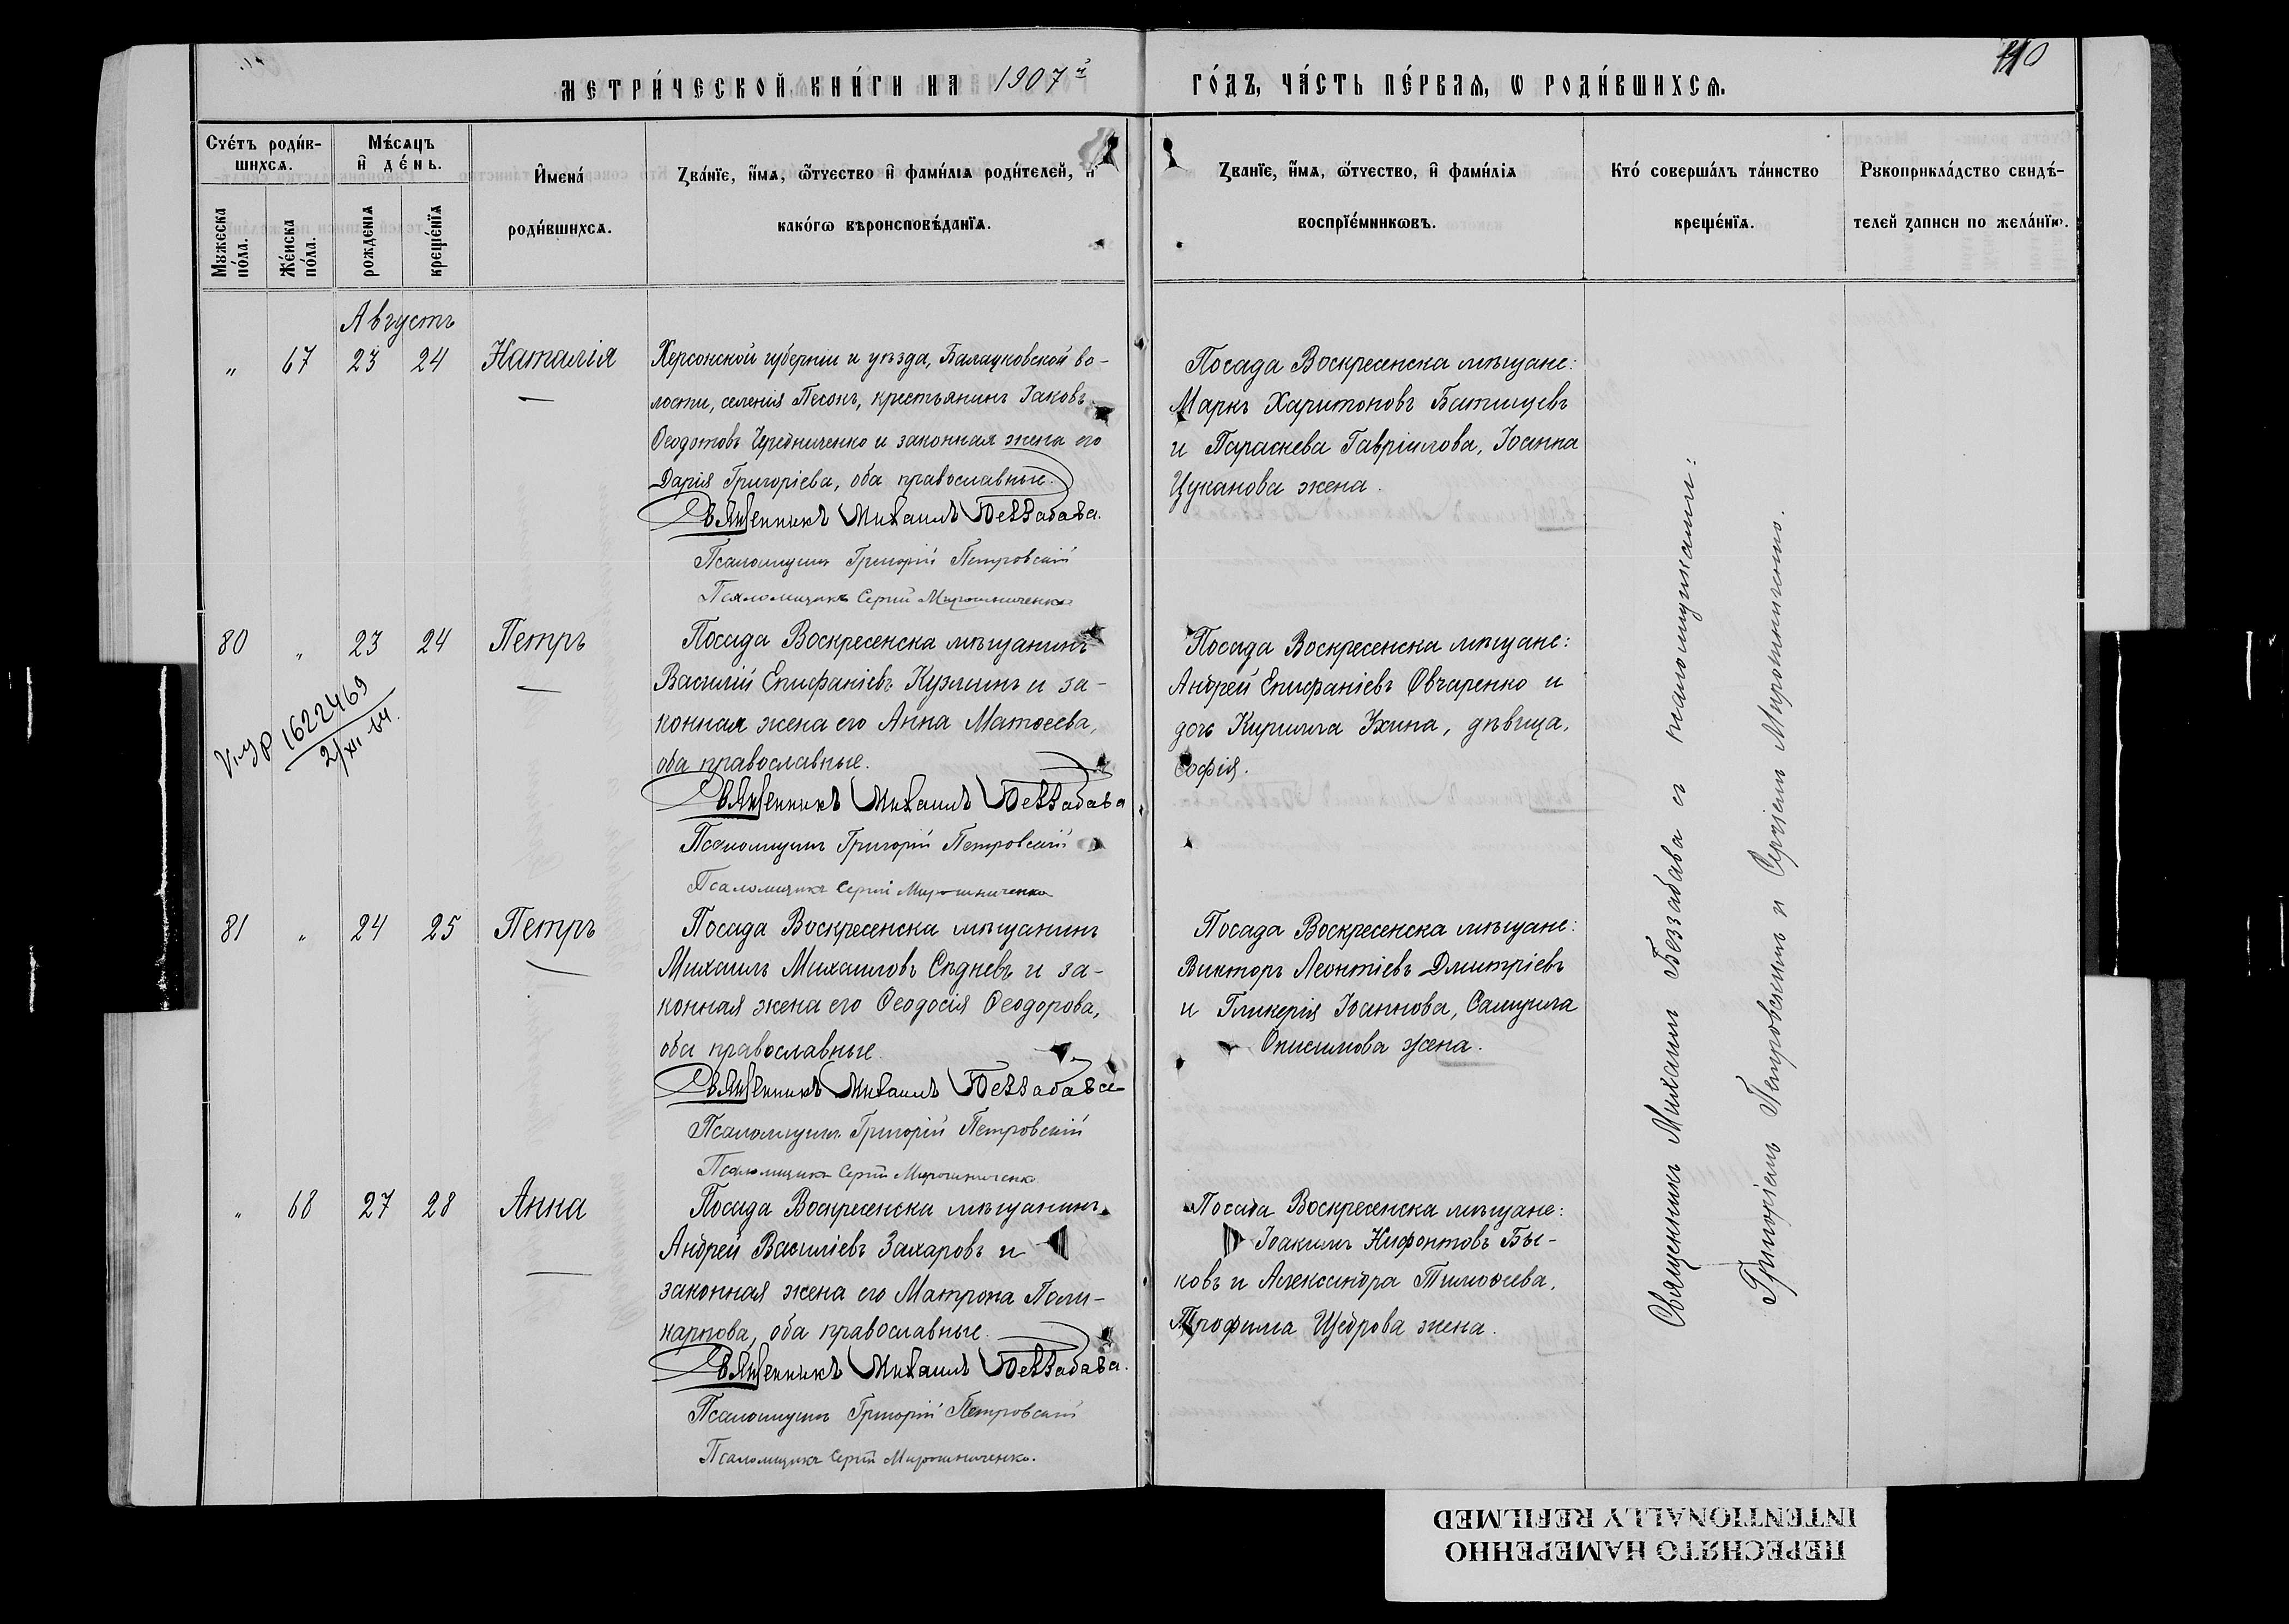 110
МЕТРИ́ЧЕСКОЙ КНИ́ГИ НА 1907й ГО́ДЪ, ЧА́СТЬ ПЕ́РВАѦ, Ѡ РОДИ́ВШИХСѦ.
Сче́тъ роди́в-
шихсѧ.
Мꙋжеска
по́ла.
Же́нска
по́ла.
Мѣ́сѧцъ
и҆ де́нь.
рожденїѧ
креще́нїѧ
И҆мена́
роди́вшихсѧ.
Зва́нїе, и҆́мѧ, ѻ҆́тчество и҆ фами́лїѧ роди́телей, и҆
како́гѡ вѣроисповѣ́данїѧ.
Зва́нїе, и҆́мѧ, ѻ҆́тчество, и҆ фами́лїѧ
воспрїе́мникѡвъ.
Кто́ соверша́лъ та́инство
креще́нїѧ.
Рꙋкоприкла́дство свидѣ́-
телей записи по жела́нїю.
Августъ
„ 67 23 24 Наталія
Херсонской губерніи и уѣзда, Балацковской во-
лости, селенія Песокъ, крестьянинъ Іаковъ
Ѳеодотовъ Чередниченко и законная жена его
Дарія Григоріева, оба православные.
Священникъ Михаилъ Беззабава.
Псаломщикъ Григорій Петровскій
Псаломщикъ Сергій Мирошниченко
Посада Воскресенска мѣщане:
Маркъ Харитоновъ Батищевъ
и Параскева Гавріилова, Іоанна
Цуканова жена.
80 „ 23 24 Петръ
1622469
2/XII 64.
Посада Воскресенска мѣщанинъ
Василій Епифаніевъ Кузминъ и за-
конная жена его Анна Матѳеева,
оба православные.
Священникъ Михаилъ Беззабава
Псаломщикъ Григорій Петровскій
Псаломщикъ Сергій Мирошниченко
Посада Воскресенска мѣщане:
Андрей Епифаніевъ Овчаренко и
дочь Кирилла Ухина, дѣвица,
Софія.
81 „ 24 25 Петръ
Посада Воскресенска мѣщанинъ
Михаилъ Михаиловъ Сѣдневъ и за-
конная жена его Ѳеодосія Ѳеодорова,
оба православные.
Священникъ Михаилъ Беззабава
Псаломщикъ Григорій Петровскій
Псаломщикъ Сергій Мирошниченко
Посада Воскресенска мѣщане:
Викторъ Леонтіевъ Дмитріевъ
и Гликерія Іоаннова, Самуила
Онисимова жена.
„ 68 27 28 Анна
Посада Воскресенска мѣщанинъ
Андрей Василіевъ Захаровъ и
законная жена его Матрона Поли-
карпова, оба православные.
Священникъ Михаилъ Беззабава.
Псаломщикъ Григорій Петровскій
Псаломщикъ Сергій Мирошниченко.
Посада Воскресенска мѣщане:
Іоакимъ Нифонтовъ Бы-
ковъ и Александра Тимоѳеева,
Трофима Щедрова жена.
Священникъ Михаилъ Беззабава съ псаломщиками:
Григоріемъ Петровскимъ и Сергіемъ Мирошниченко.
ПЕРЕСНЯТО НАМЕРЕННО
INTENTIONALLY REFILMED